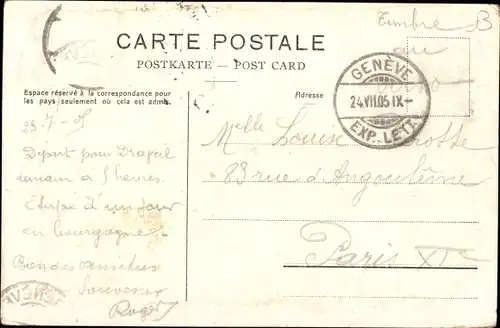 Timbre
au
verso
B
CARTE POSTALE
POSTKARTE – POST CARD
GENÈVE
24.VII.05 IX–
EXP. LETT.
Espace réservé à la correspondance pour
les pays seulement où cela est admis.
Adresse
Melle Louise
83 rue d'Angoulême
Paris XIe
23-7-05
Départ pour
demain à 5 heures.
Etape d'un jour
en bourgogne
Bon des amitiés
Souvenir
Roger